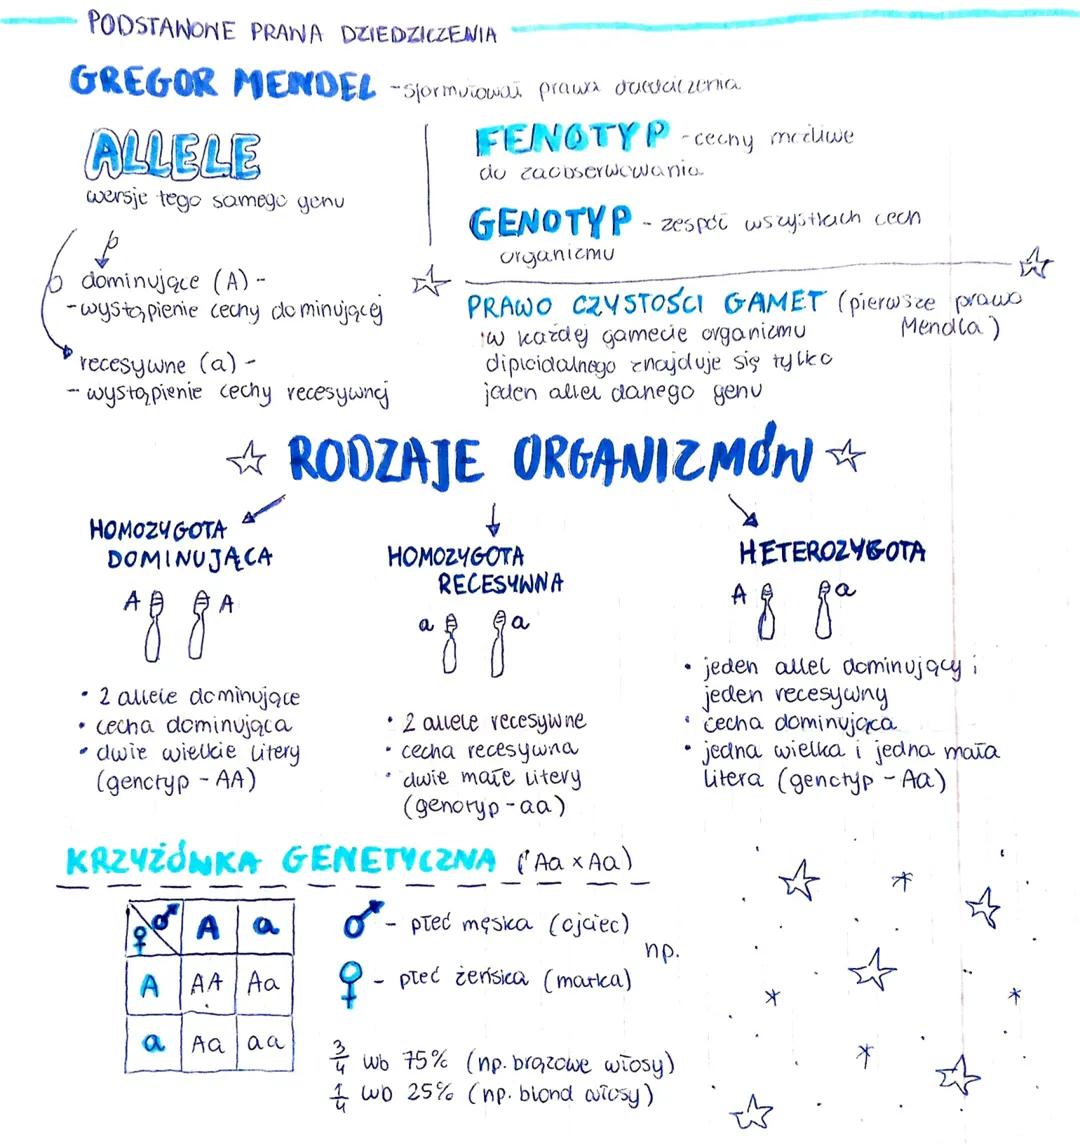 PODSTAWOWE PRAWA DZIEDZICZENIA
GREGOR MENDEL - sformułował prawa dziedziczenia
ALLELE
wersje tego samego genu
dominujące (A) -
- wystąpienie cechy dominującej
recesywne (a) -
- wystąpienie cechy recesywnej
FENOTYP - cechy możliwe
do zaobserwowania
GENOTYP - zespół wszystkich cech
organizmu
PRAWO CZYSTOŚCI GAMET (pierwsze prawo
Mendla)
w każdej gamecie organizmu
diploidalnego znajduje się tylko
jeden allel danego genu
RODZAJE ORGANIZMÓW
HOMOZYGOTA
DOMINUJĄCA
A A
• 2 allele dominujące
• cecha dominująca
• dwie wielkie litery
(genotyp - AA)
HOMOZYGOTA
RECESYWNA
a a
• 2 allele recesywne
• cecha recesywna
• dwie małe litery
(genotyp - aa)
HETEROZYGOTA
A a
• jeden allel dominujący i
jeden recesywny
• cecha dominująca
• jedna wielka i jedna mała
litera (genotyp - Aa)
KRZYŻÓWKA GENETYCZNA (Aa x Aa)
♀ ♂ A a
A AA Aa
a Aa aa
♂ - płeć męska (ojciec)
np.
♀ - płeć żeńska (matka)
3/4 lub 75% (np. brązowe włosy)
1/4 lub 25% (np. blond włosy)